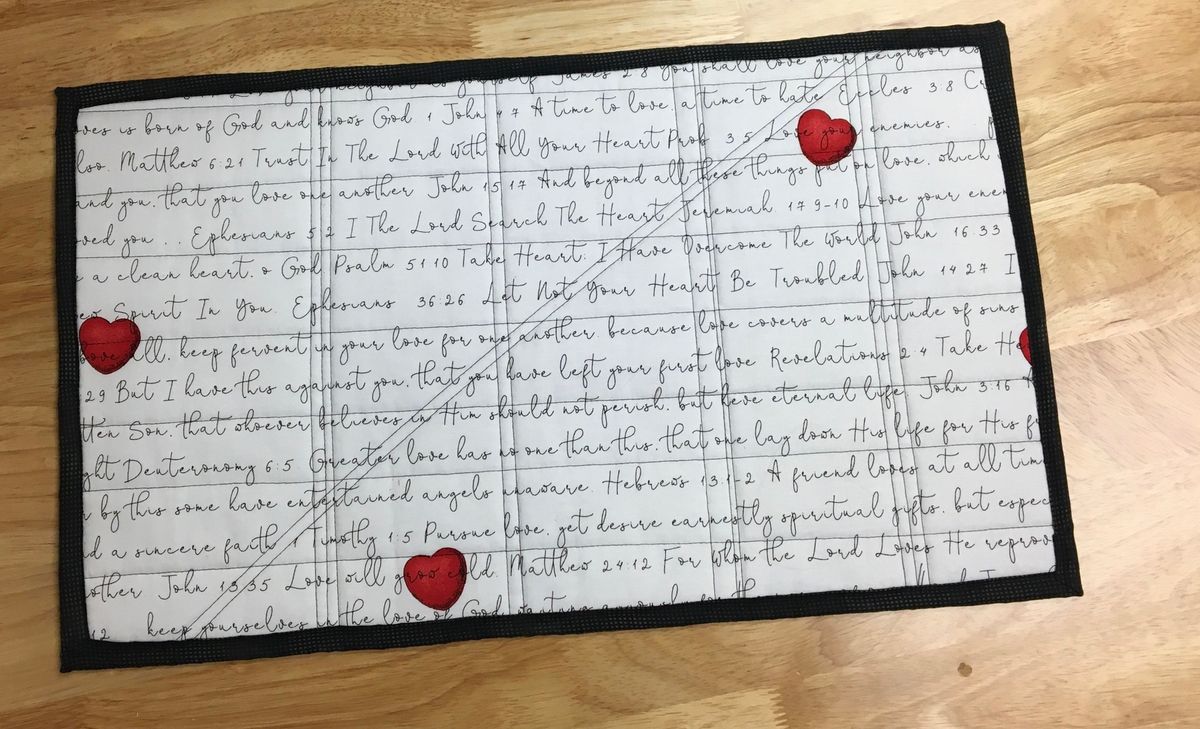 yourself James 2 8 You shall love your neighbor as
oves is born of God and knows God 1 John 4 7 A time to love, a time to hate Eccles 3:8
lso. Matthew 6:21 Trust In The Lord With All Your Heart Prob 3 5 Love your enemies.
and you, that you love one another John 15 17 And beyond all these things put on love, which
oved you . . Ephesians 5 2 I The Lord Search The Heart Jeremiah 17 9-10 Love your ene
e a clean heart, o God Psalm 51 10 Take Heart; I Have Overcome The World John 16:33
ew Spirit In You. Ephesians 36:26 Let Not Your Heart Be Troubled John 14 27 I
ove all, keep fervent in your love for one another, because love covers a multitude of sins
29 But I have this against you, that you have left your first love Revelations 2 4 Take He
tten Son, that whoever believes in Him should not perish, but have eternal life John 3:16
ght Deuteronomy 6:5 Greater love has no one than this, that one lay down His life for His f
by this some have entertained angels unaware. Hebrews 13:1-2 A friend loves at all tim
d a sincere faith 1 Timothy 1:5 Pursue love, yet desire earnestly spiritual gifts, but espec
other John 13 35 Love will grow cold. Matthew 24:12 For Whom the Lord Loves He reprov
12 keep yourselves in the love of God